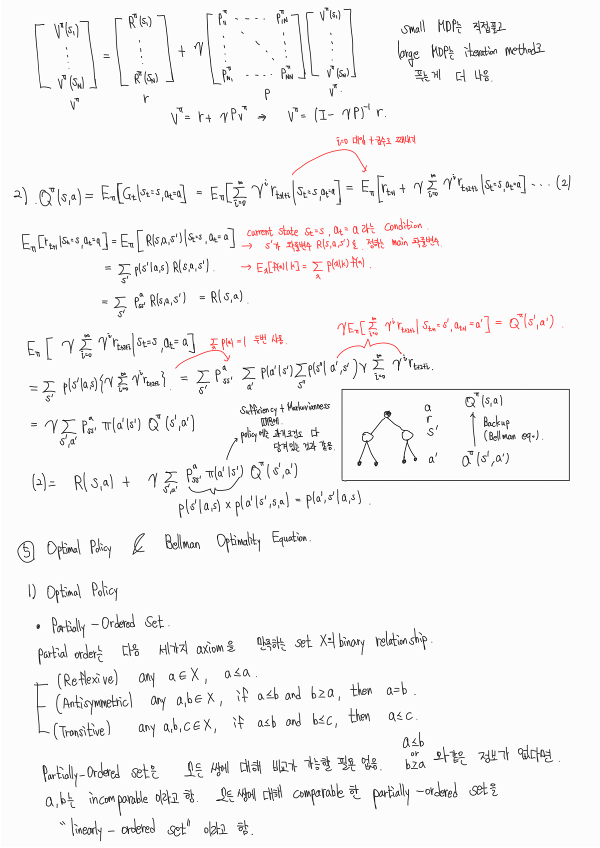 [V^π(s₁) ⋮ V^π(s_N)] = [R^π(s₁) ⋮ R^π(s_N)] + γ [P₁₁^π ⋯ P₁N^π ⋮ P_N₁^π ⋯ P_NN^π] [V^π(s₁) ⋮ V^π(s_N)]
V^π r P V^π
small MDP는 직접풀고
large MDP는 iteration method로
푸는게 더 나음.
V^π = r + γPv^π → V^π = (I - γP)^{-1} r.
i=0 대입 + 급수로 꺼내기
2) Q^π(s,a) = E_π[G_t|s_t=s, a_t=a] = E_π[∑_{i=0}^∞ γ^i r_{t+i+1}|s_t=s, a_t=a] = E_π[r_{t+1} + γ ∑_{i=0}^∞ γ^i r_{t+i+2}|s_t=s, a_t=a] ··· (2)
E_π[r_{t+1}|s_t=s, a_t=a] = E_π[R(s,a,s')|s_t=s, a_t=a]
current state s_t=s, a_t=a 라는 condition.
→ s'가 확률변수 R(s,a,s')을 정하는 main 확률변수.
= ∑_{s'} p(s'|a,s) R(s,a,s').
→ E_π[f(a)|k] = ∑_a p(a|k) f(a).
= ∑_{s'} P_{ss'}^a R(s,a,s') = R(s,a)
γE_π[∑_{i=0}^∞ γ^i r_{t+i+2}|s_{t+1}=s', a_{t+1}=a'] = Q^π(s',a').
E_π[γ ∑_{i=0}^∞ γ^i r_{t+i+2}|s_t=s, a_t=a]
∑ p(x)=1 두번 사용.
= ∑_{s'} p(s'|a,s){γ ∑_{i=0}^∞ γ^i r_{t+i+2}}. = ∑_{s'} P_{ss'}^a ∑_{a'} p(a'|s') ∑_{s''} p(s''|a',s') γ ∑_{i=0}^∞ γ^i r_{t+i+2}.
= γ ∑_{s',a'} P_{ss'}^a π(a'|s') Q^π(s',a')
Sufficiency + Markovianness
때문에
policy에는 과거조건도 다
담겨있는 것과 같음.
a Q^π(s,a)
r
s' Backup
(Bellman eqn.)
a' Q^π(s',a')
(2) = R(s,a) + γ ∑_{s',a'} P_{ss'}^a π(a'|s') Q^π(s',a')
p(s'|a,s) × p(a'|s',s,a) = p(a',s'|a,s).
⑤ Optimal Policy & Bellman Optimality Equation.
1) Optimal Policy
• Partially-Ordered Set.
partial order는 다음 세가지 axiom을 만족하는 set X의 binary relationship.
(Reflexive) any a∈X, a≤a.
(Antisymmetric) any a,b∈X, if a≤b and b≥a, then a=b.
(Transitive) any a,b,c∈X, if a≤b and b≤c, then a≤c.
Partially-Ordered set은 모든 쌍에 대해 비교가 가능할 필요 없음. a≤b or b≥a 와같은 정보가 없다면
a,b는 incomparable 이라고 함. 모든 쌍에 대해 comparable 한 partially-ordered set을
"linearly-ordered set" 이라고 함.